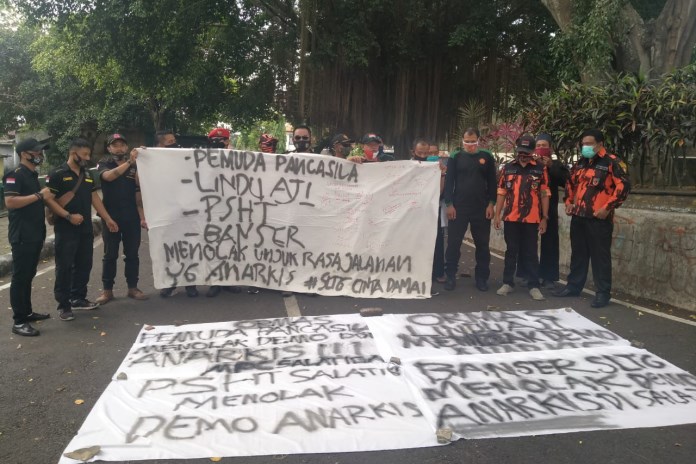 - PEMUDA PANCASILA
- LINDU AJI
- PSHT
- BANSER
MENOLAK UNJUK RASA JALANAN
YG ANARKIS # SLTG CINTA DAMAI
ORMAS
PEMUDA PANCASILA
MENOLAK DEMO DAN
ANARKIS !!!
MPC SALATIGA
PSHT SALATIGA
MENOLAK
DEMO ANARKIS
MENOLAK
BANSER SLTG
MENOLAK DEMO
ANARKIS DI SALA